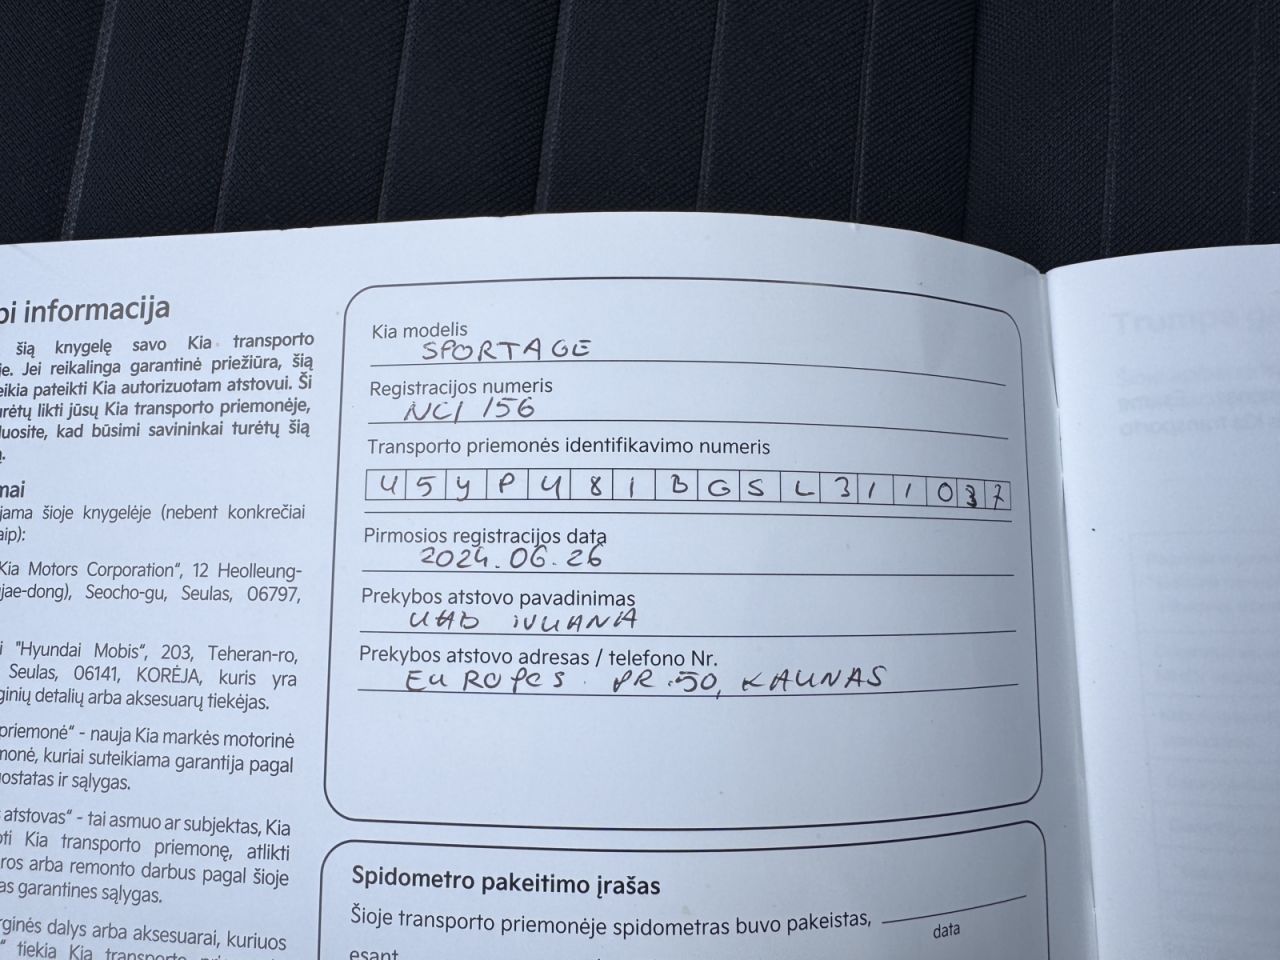 bi informacija
šią knygelę savo Kia transporto
je. Jei reikalinga garantinė priežiūra, šią
eikia pateikti Kia autorizuotam atstovui. Ši
urėtų likti jūsų Kia transporto priemonėje,
luosite, kad būsimi savininkai turėtų šią
ą.
mai
jama šioje knygelėje (nebent konkrečiai
aip):
Kia Motors Corporation“, 12 Heolleung-
jae-dong), Seocho-gu, Seulas, 06797,
i "Hyundai Mobis“, 203, Teheran-ro,
Seulas, 06141, KORĖJA, kuris yra
ginių detalių arba aksesuarų tiekėjas.
priemonė“ - nauja Kia markės motorinė
monė, kuriai suteikiama garantija pagal
uostatas ir sąlygas.
atstovas“ - tai asmuo ar subjektas, Kia
oti Kia transporto priemonę, atlikti
ūros arba remonto darbus pagal šioje
as garantines sąlygas.
rginės dalys arba aksesuarai, kuriuos
“ tiekia Kia transporto
Kia modelis
SPORTAGE
Registracijos numeris
NCI 156
Transporto priemonės identifikavimo numeris
U5YPU81BGSL311037
Pirmosios registracijos data
2024.06.26
Prekybos atstovo pavadinimas
UAB
Prekybos atstovo adresas / telefono Nr.
EUROPOS PR.50, KAUNAS
Spidometro pakeitimo įrašas
Šioje transporto priemonėje spidometras buvo pakeistas,
data
esant